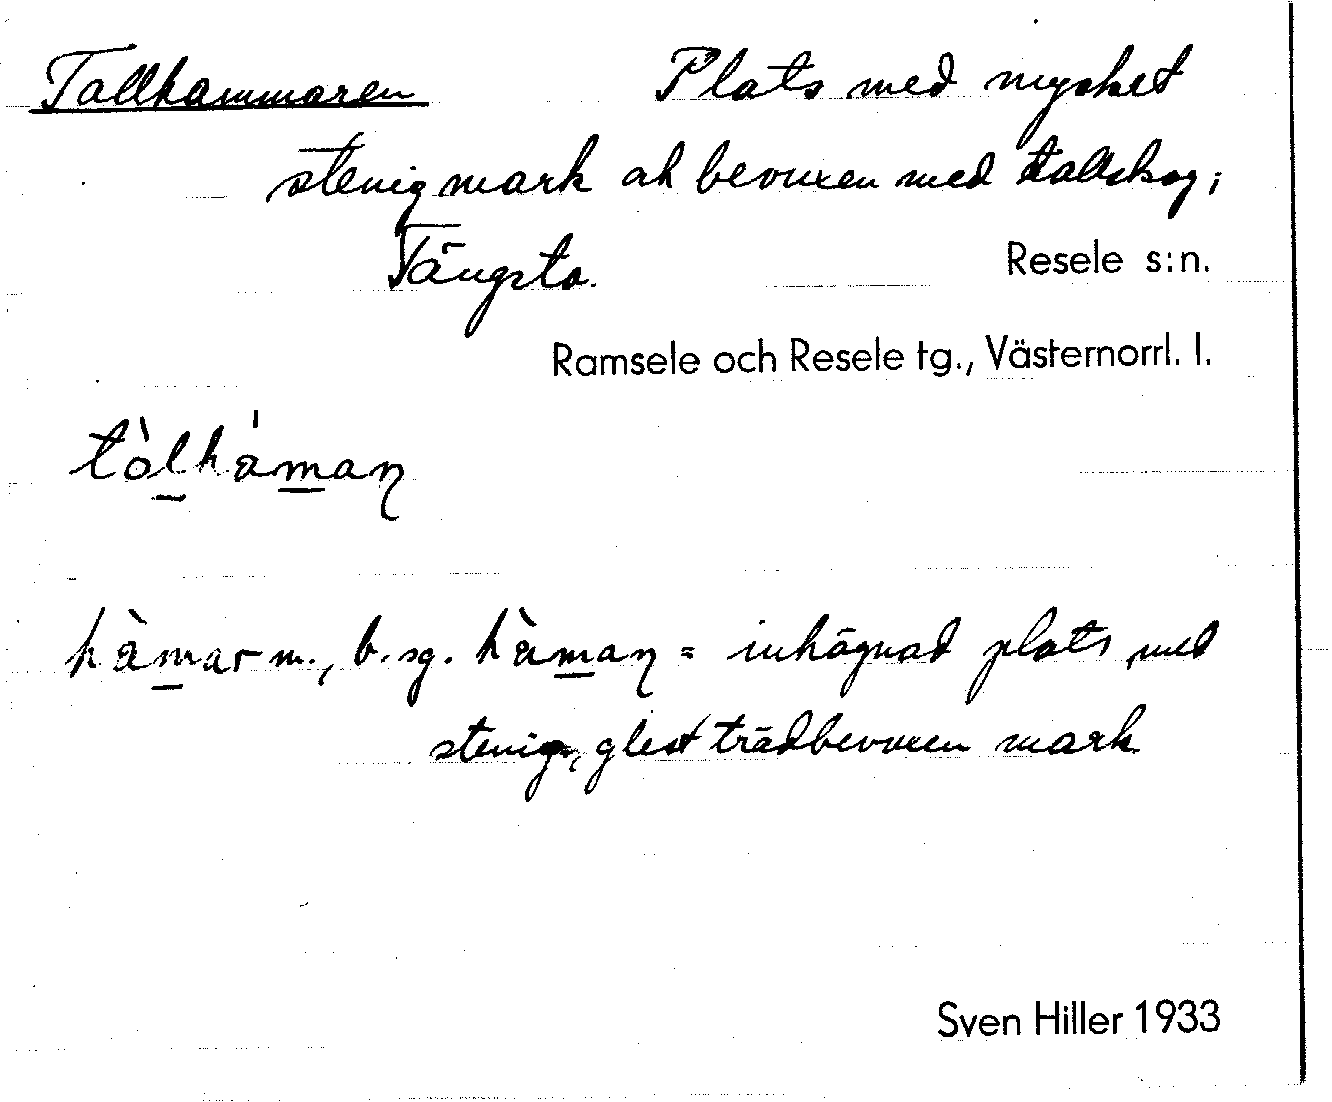 Tallhammaren Plats med mycket
stenig mark ok bevuxen med tallskog;
Tängsta. Resele s:n.
Ramsele och Resele tg., Västernorrl. l.
tòlháman̡
hàmar m., b. sg. hàman̡ = inhägnad plats med
stenig, glest trädbevuxen mark
Sven Hiller 1933